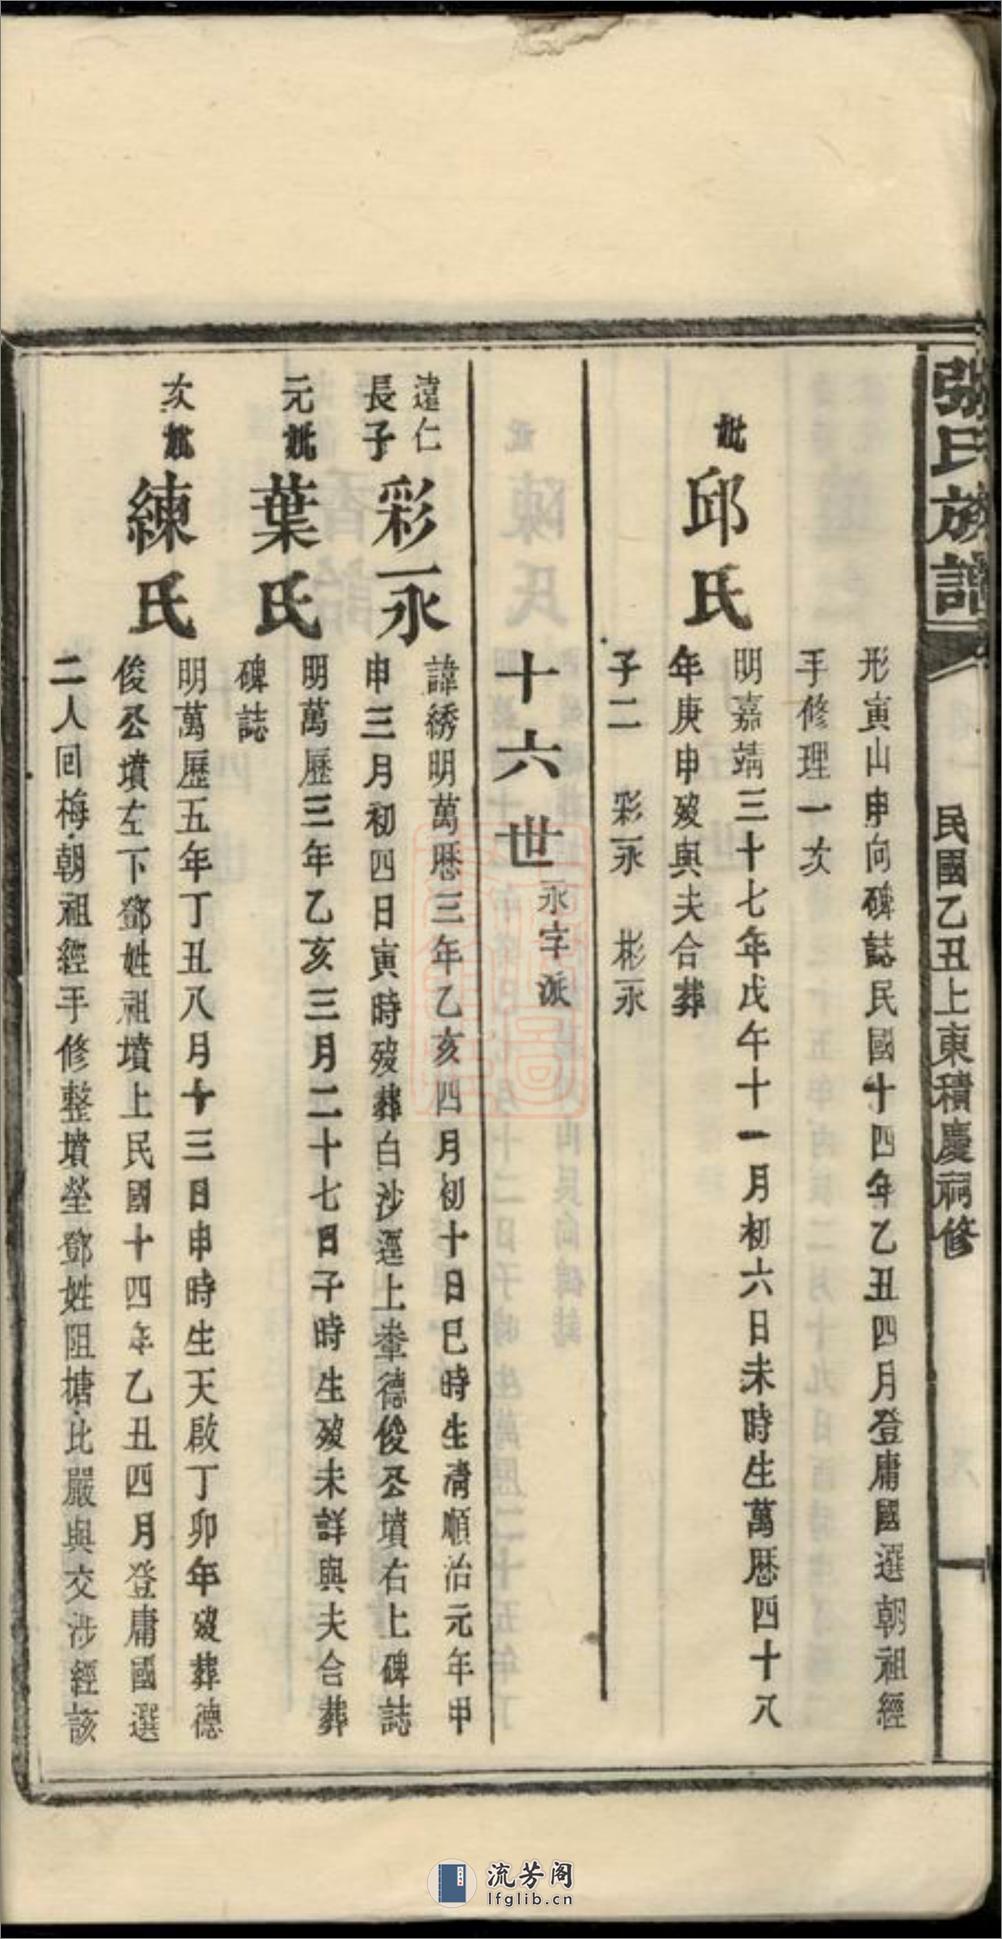 張氏族譜
民國乙丑上東積慶祠修
十
形寅山申向碑誌民國十四年乙丑四月登庸國選朝祖經
手修理一次
妣邱氏
明嘉靖三十七年戊午十一月初六日未時生萬曆四十八
年庚申歿與夫合葬
子二 彩永 彬永
十六世 永字派
遠仁
長子 彩永
諱綉明萬曆三年乙亥四月初十日巳時生清順治元年甲
申三月初四日寅時歿葬白沙逕上輋德俊公墳右上碑誌
元妣葉氏
明萬曆三年乙亥三月二十七日子時生歿未詳與夫合葬
碑誌
次妣練氏
明萬曆五年丁丑八月十三日申時生天啟丁卯年歿葬德
俊公墳左下鄧姓祖墳上民國十四年乙丑四月登庸國選
二人回梅朝祖經手修整墳塋鄧姓阻塘比嚴與交涉經該
流芳阁
lfglib.cn